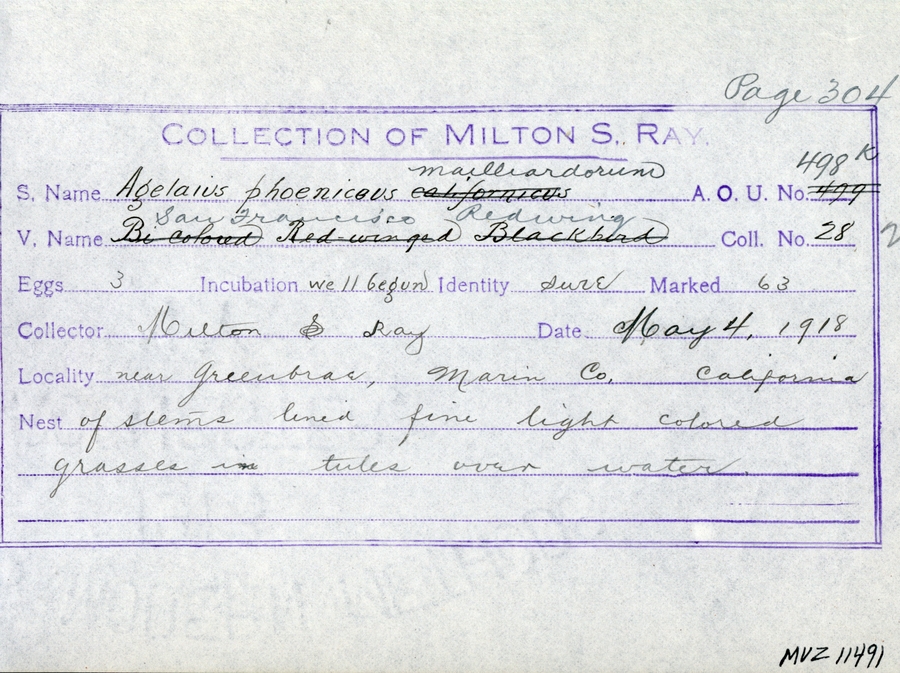 Page 304
COLLECTION OF MILTON S. RAY.
mailliardorum 498 K
S. Name Agelaius phoeniceus californicus A. O. U. No. 499
San Francisco Redwing
V. Name Bi-colored Red-winged Blackbird Coll. No. 28 2
Eggs 3 Incubation well begun Identity sure Marked 63
Collector Milton S Ray Date May 4, 1918
Locality near Greenbrae, Marin Co. California
Nest of stems lined fine light colored
grasses in tules over water.
MVZ 11491